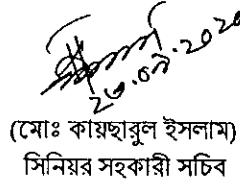 ২৩.০৯.২০২০
(মোঃ কায়ছারুল ইসলাম)
সিনিয়র সহকারী সচিব